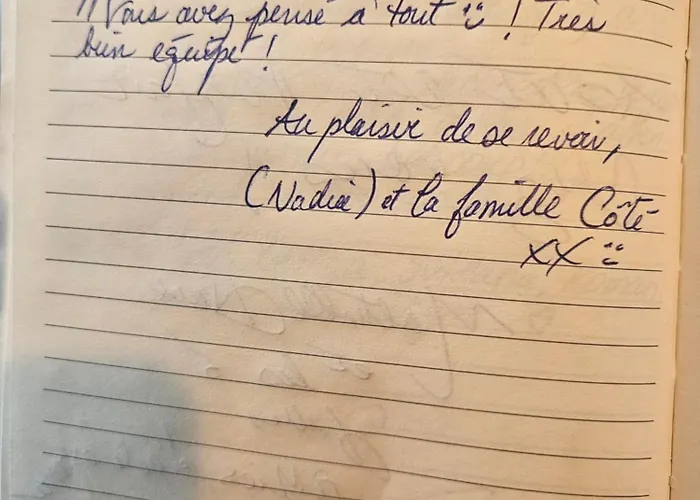 !! Vous avez pensé à tout :) ! Très
bien équipé !
Au plaisir de se revoir,
(Nadia) et la famille Côté
XX :)